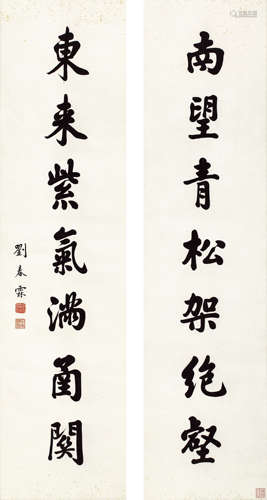 南望青松架绝壑
東来紫氣满函關
劉春霖